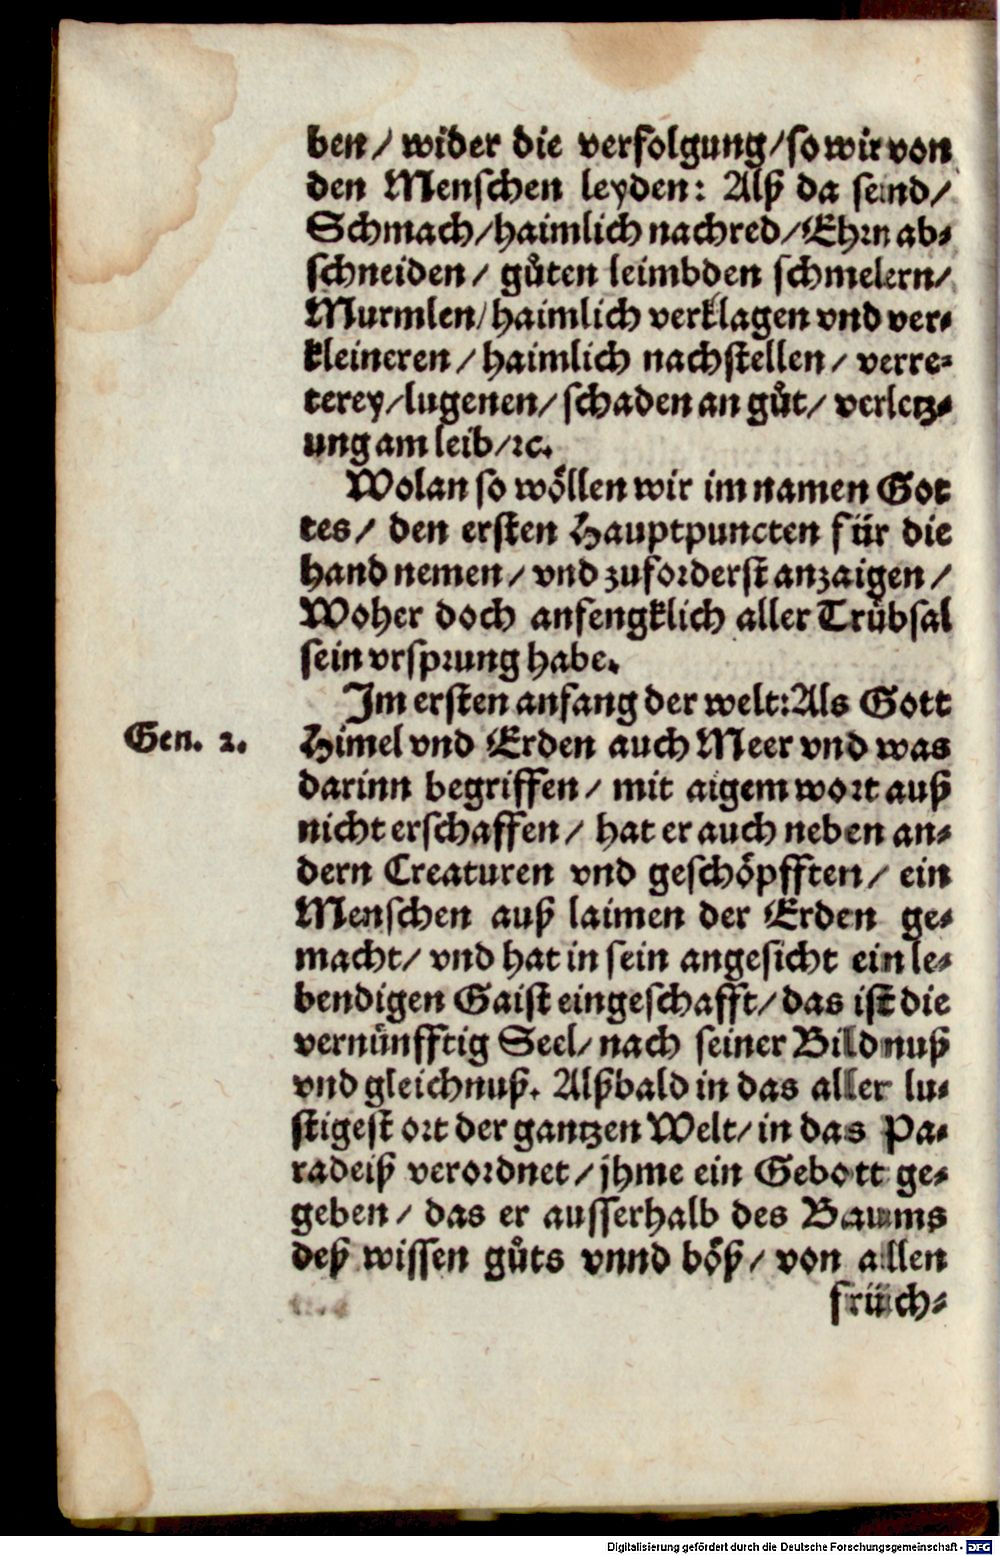 ben / wider die verfolgung / so wir von
den Menschen leyden: Alß da seind /
Schmach / haimlich nachred / Ehrn ab⸗
schneiden / gůten leimbden schmelern /
Murmlen / haimlich verklagen vnd ver⸗
kleineren / haimlich nachstellen / verre⸗
terey / lugenen / schaden an gůt / verletz⸗
ung am leib / ꝛc.
Wolan so wöllen wir im namen Got
tes / den ersten Hauptpuncten für die
hand nemen / vnd zuforderst anzaigen /
Woher doch anfengklich aller Trübsal
sein vrsprung habe.
Im ersten anfang der welt: Als Gott
Gen. 2.
Himel vnd Erden auch Meer vnd was
darinn begriffen / mit aigem wort auß
nicht erschaffen / hat er auch neben an⸗
dern Creaturen vnd geschöpfften / ein
Menschen auß laimen der Erden ge⸗
macht / vnd hat in sein angesicht ein le⸗
bendigen Gaist eingeschafft / das ist die
vernünfftig Seel / nach seiner Bildnuß
vnd gleichnuß. Alßbald in das aller lu⸗
stigest ort der gantzen Welt / in das Pa⸗
radeiß verordnet / jhme ein Gebott ge⸗
geben / das er ausserhalb des Baums
deß wissen gůts vnnd böß / von allen
früch⸗
Digitalisierung gefördert durch die Deutsche Forschungsgemeinschaft - DFG